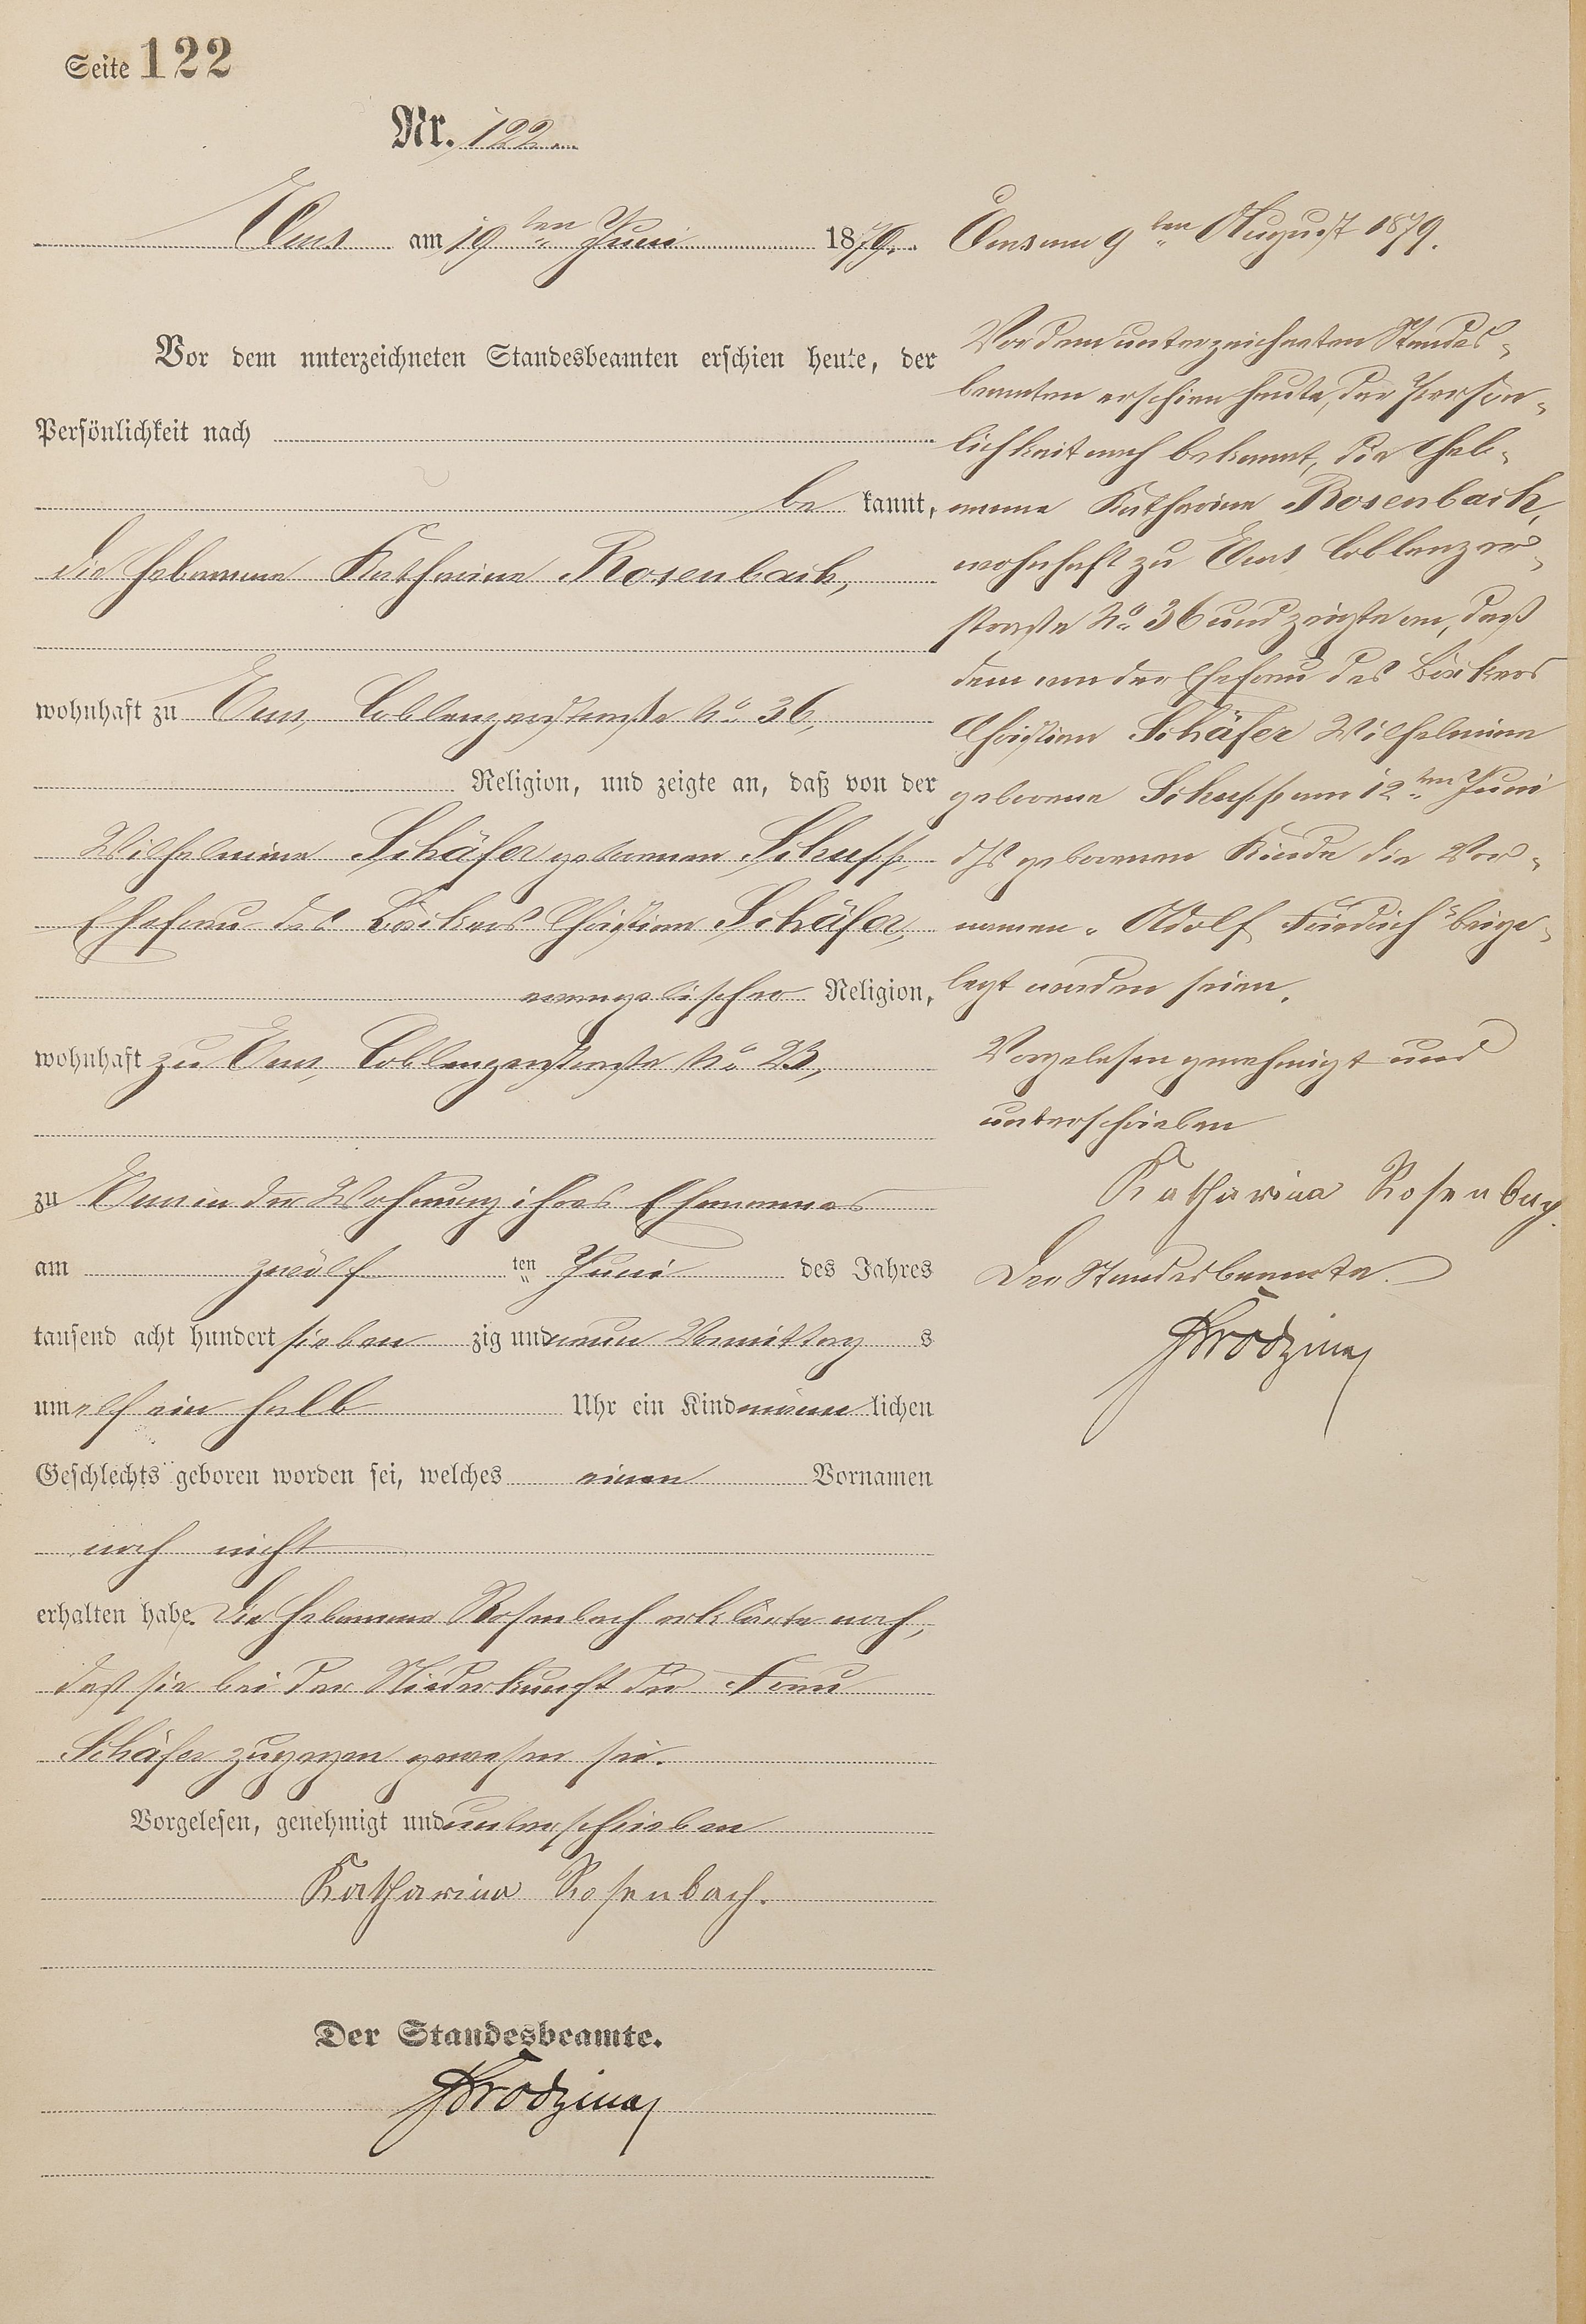 Seite 122
Nr. 122.
Ems am 19ten Juni 1879.
Vor dem unterzeichneten Standesbeamten erschien heute, der
Persönlichkeit nach
be kannt,
die Hebamme Katharina Rosenbach,
wohnhaft zu Ems, Coblenzerstraße No. 36,
Religion, und zeigte an, daß von der
Wilhelmine Schäfer geborenen Schupp,
Ehefrau des Bäckers Christian Schäfer,
evangelischer Religion,
wohnhaft zu Ems, Coblenzerstraße No. 23,
zu Ems in der Wohnung ihres Ehemannes
am zwölf ten Juni des Jahres
tausend acht hundert sieben zig und neun Vormittag s
um elf ein halb Uhr ein Kind männ lichen
Geschlechts geboren worden sei, welches einen Vornamen
noch nicht
erhalten habe. Die Hebamme Rosenbach erklärte noch,
daß sie bei der Niederkunft der Frau
Schäfer zugegen gewesen sei.
Vorgelesen, genehmigt und unterschrieben
Katharina Rosenbach.
Der Standesbeamte.
Ems am 9ten August 1879.
Vor dem unterzeichneten Standes-
beamten erschien heute, der Persön-
lichkeit nach bekannt, die Heb-
amme Katharina Rosenbach,
wohnhaft zu Ems Coblenzer-
straße No. 36 und zeigte an, daß
dem von der Ehefrau des Bäckers
Christian Schäfer Wilhelmine
geborene Schupp am 12ten Juni
d Js geborenen Kinde die Vor-
namen "Adolf Friedrich" beige-
legt worden seien.
Vorgelesen genehmigt und
unterschrieben
Katharina Rosenbach.
Der Standesbeamte.